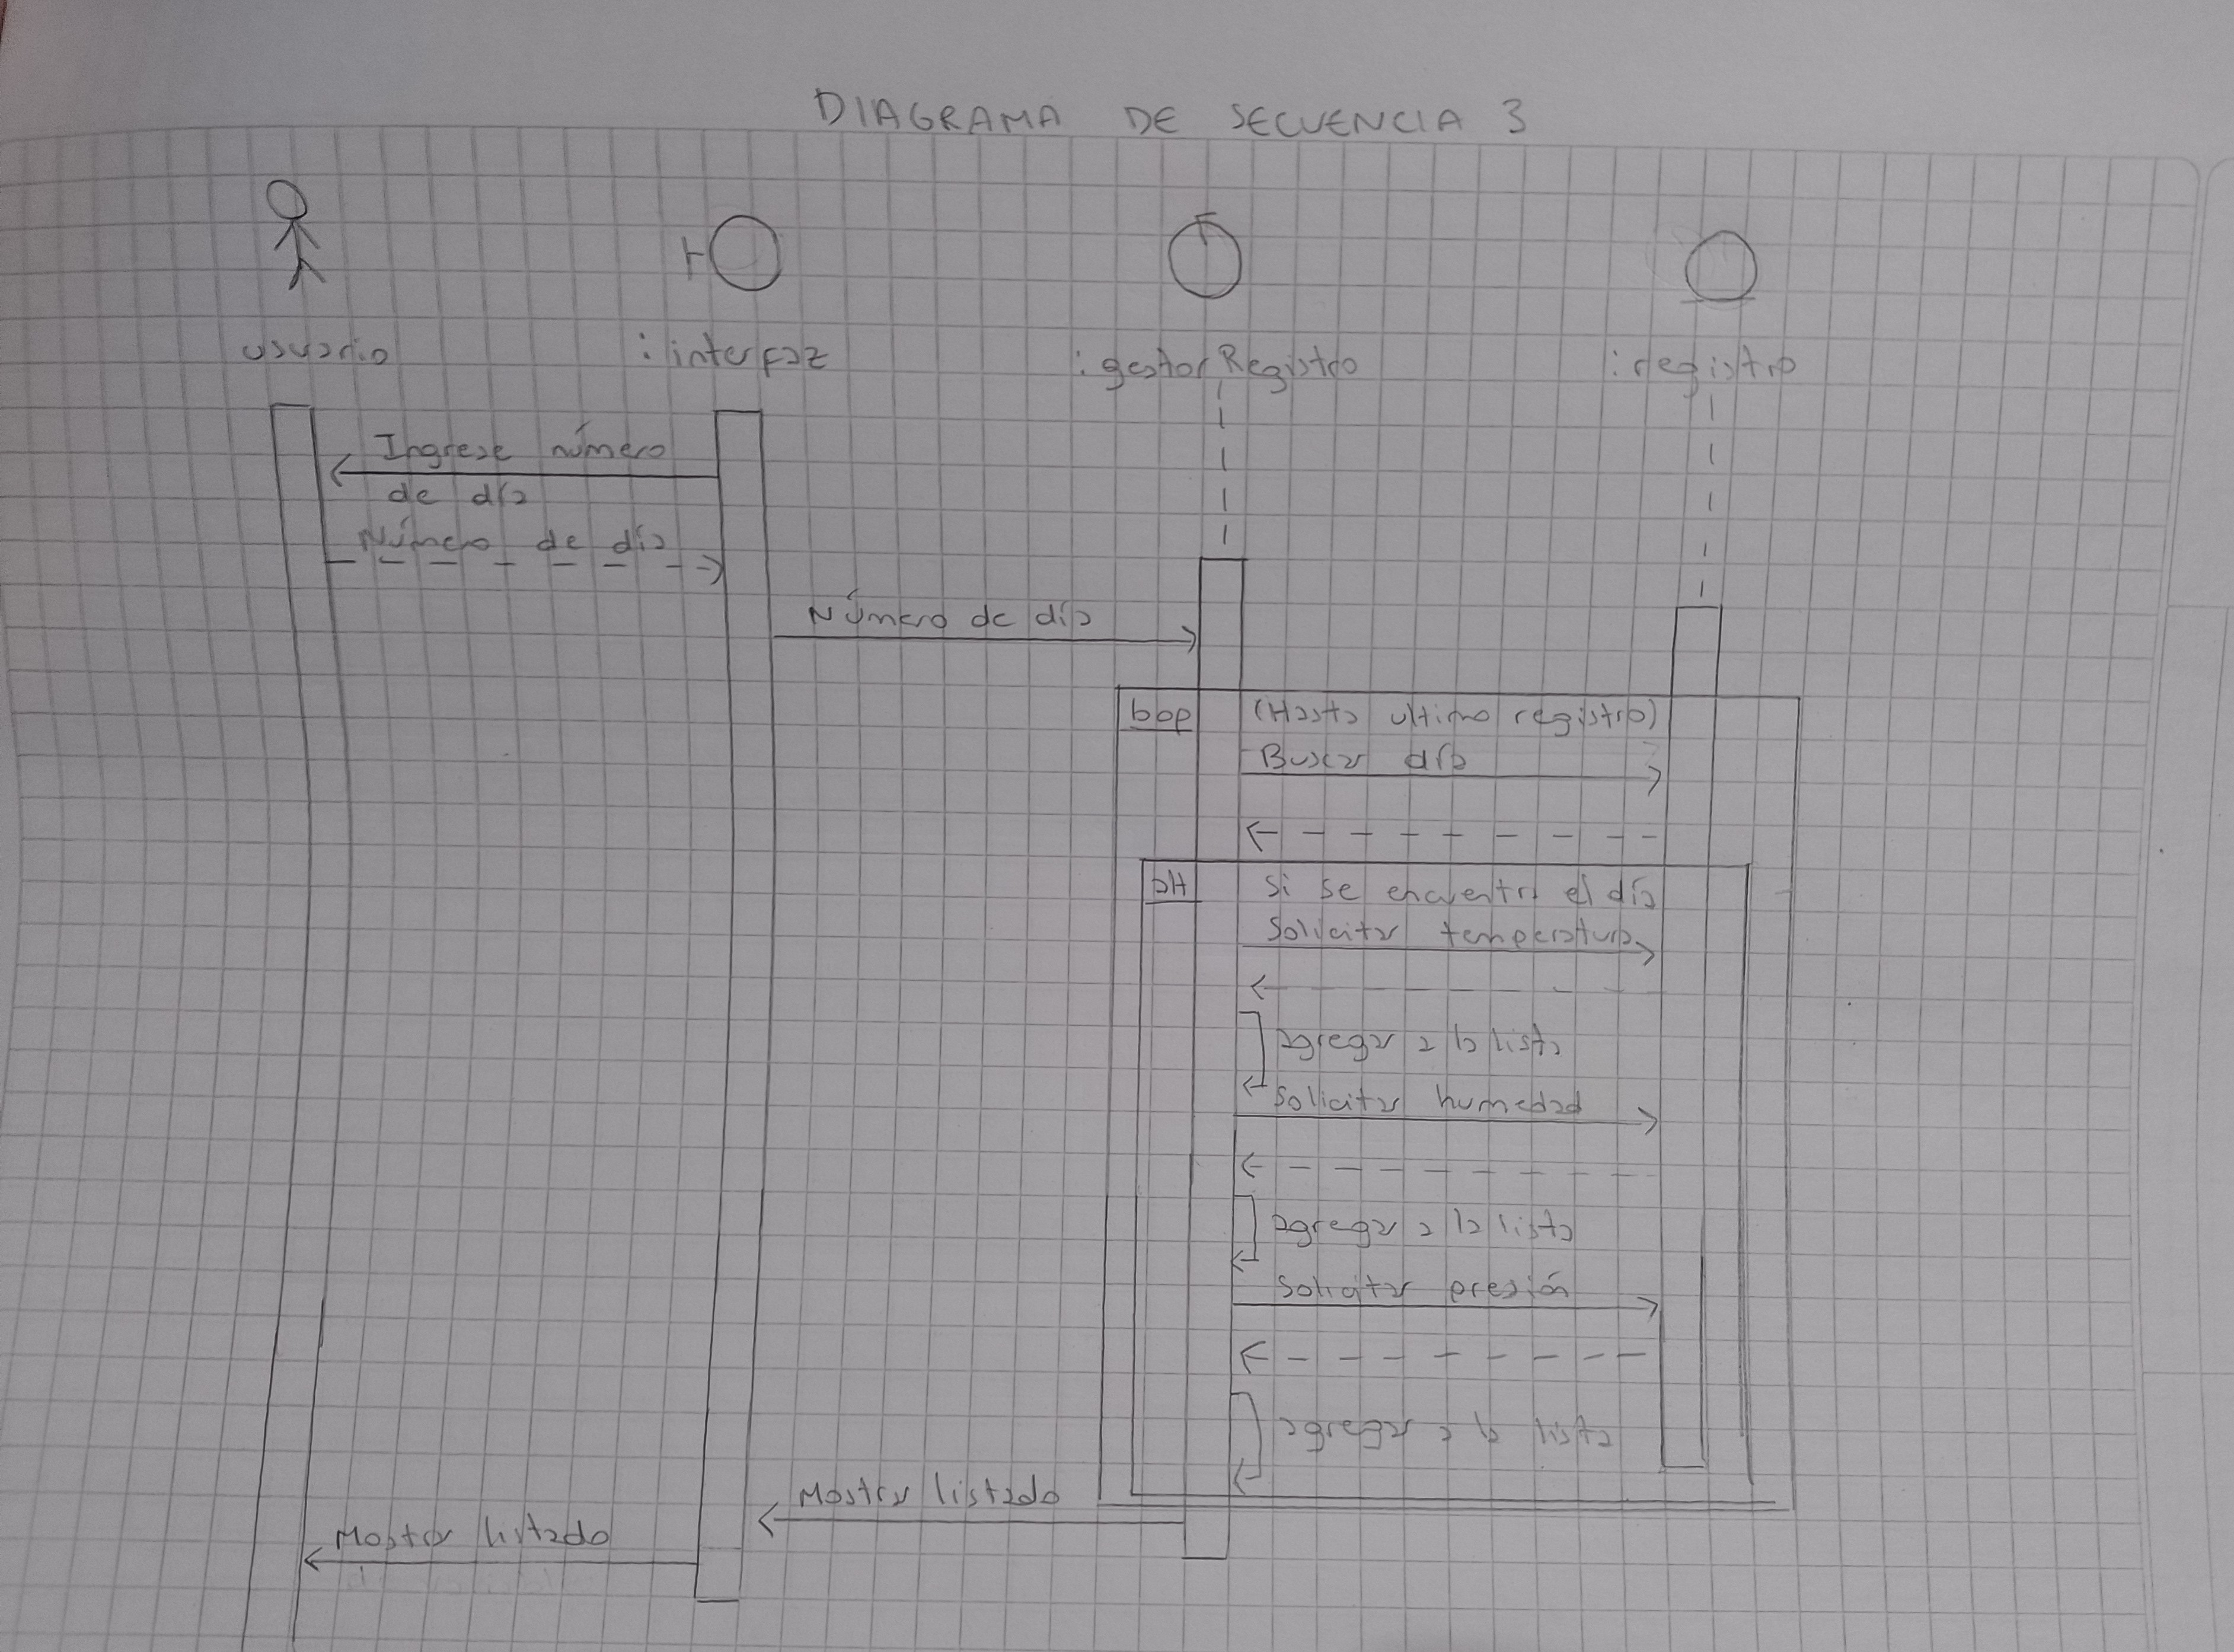 DIAGRAMA DE SECUENCIA 3
usuario
:interfaz
:gestorRegistro
:registro
Ingrese número
de día
Número de día
Número de día
loop (Hasta ultimo registro)
Buscar día
alt Si se encuentra el día
Solicitar temperatura
agregar a la lista
Solicitar humedad
agregar a la lista
Solicitar presión
agregar a la lista
Mostrar listado
Mostrar listado